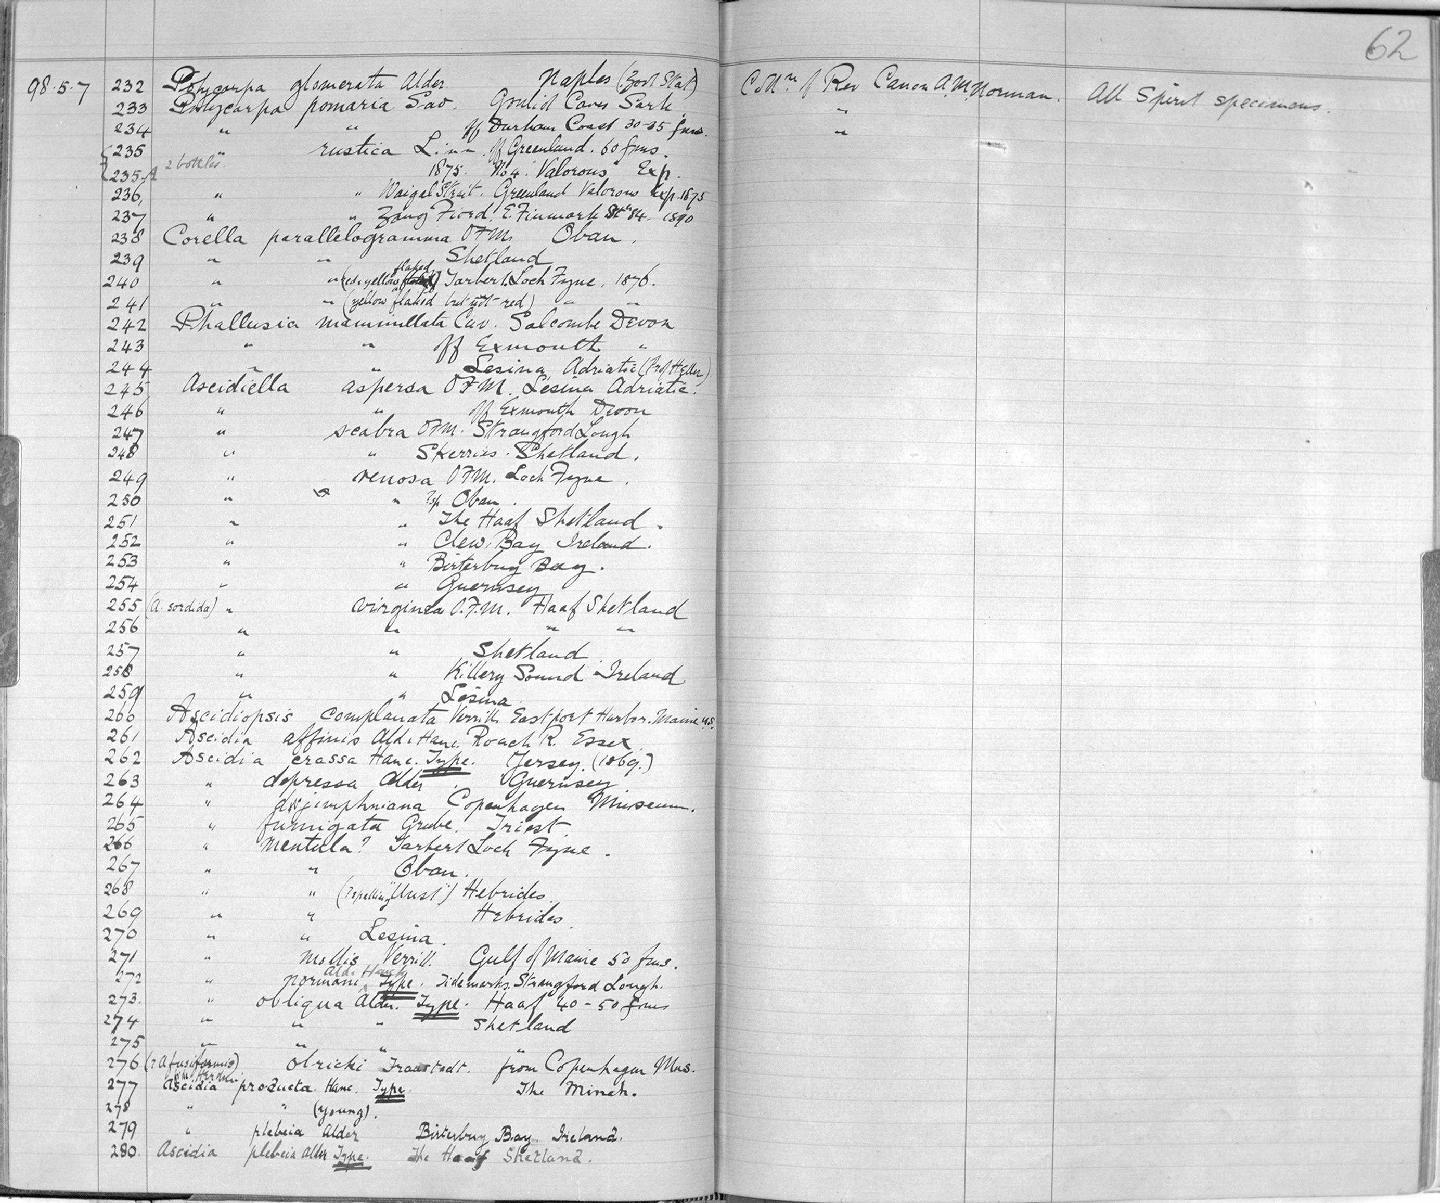 62
98.5.7 232 Polycarpa glomerata Alder Naples (Zool Stat) Coll'n of Rev Canon A.M. Norman. All Spirit specimens.
233 Polycarpa pomaria Sav. Gouliot Caves Sark "
234 " " off Durham Coast 30-35 fms. "
235 " rustica Linn. off Greenland. 60 fms.
235.A 2 bottles 1875. No 4. Valorous Exp.
236 " " Waigat Strait. Greenland Valorous Exp. 1875
237 " " Fiord, E. Finmark 1890
238 Corella parallelogramma O.F.M. Oban.
239 " " Shetland
240 " " (red & yellow flaked) Tarbert. Loch Fyne. 1876.
241 " " (yellow flaked but not red) " "
242 Phallusia mammillata Cuv. Salcombe Devon
243 " " off Exmouth "
244 " " Lesina, Adriatic (Prof Heller)
245 Ascidiella aspersa O.F.M. Lesina Adriatic.
246 " " off Exmouth Devon
247 " scabra O.F.M. Strangford Lough
248 " " Skerries. Shetland.
249 " venosa O.F.M. Loch Fyne.
250 " " Oban.
251 " " The Haaf Shetland.
252 " " Clew Bay Ireland.
253 " " Birterbuy Bay.
254 " " Guernsey
255 (A. sordida) " virginea O.F.M. Haaf Shetland
256 " " " "
257 " " Shetland
258 " " Killery Sound Ireland
259 " " Lesina
260 Ascidiopsis complanata Verrill Eastport Harbor. Maine U.S.
261 Ascidia affinis Ald. & Hanc. Roach R. Essex
262 Ascidia crassa Hanc. Type. Jersey. (1869.)
263 " depressa Alder. Guernsey
264 " dijmphniana Copenhagen Museum.
265 " fumigata Grube. Triest
266 " mentula? Tarbert Loch Fyne.
267 " " Oban.
268 " " Hebrides
269 " " Hebrides
270 " " Lesina.
271 " mollis Verrill. Gulf of Maine 50 fms.
272 " normani Ald. & Hanck Type. Tidemarks. Strangford Lough.
273. " obliqua Alder. Type. Haaf 40-50 fms
274 " " " Shetland
275 " " " "
276 (? A fusiformis) " olrickii Traustedt. from Copenhagen Mus.
277 Ascidia producta Hanc. Type The Minch.
278 " " (young).
279 " plebeia Alder Birterbuy Bay. Ireland.
280. Ascidia plebeia Alder Type. The Haaf Shetland.